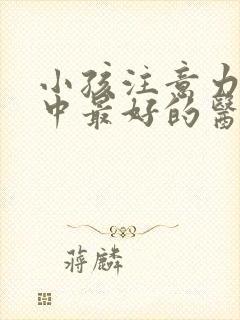 小孩注意力
中最好的醫
蔣麟